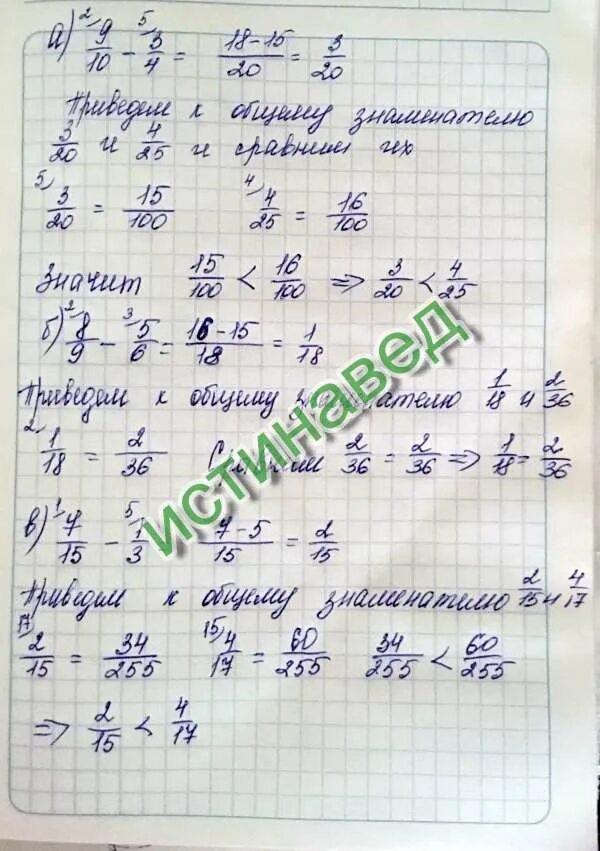 а) ²⁾9/10 - ⁵⁾3/4 = (18-15)/20 = 3/20
Приведем к общему знаменателю
3/20 и 4/25 и сравним их
⁵⁾3/20 = 15/100 ⁴⁾4/25 = 16/100
Значит 15/100 < 16/100 => 3/20 < 4/25
б) ²⁾8/9 - ³⁾5/6 = (16-15)/18 = 1/18
Приведем к общему знаменателю 1/18 и 2/36
²⁾1/18 = 2/36 Сравним 2/36 = 2/36 => 1/18 = 2/36
в) ¹⁾7/15 - ⁵⁾1/3 = (7-5)/15 = 2/15
Приведем к общему знаменателю 2/15 и 4/17
¹⁷⁾2/15 = 34/255 ¹⁵⁾4/17 = 60/255 34/255 < 60/255
=> 2/15 < 4/17
истинавед